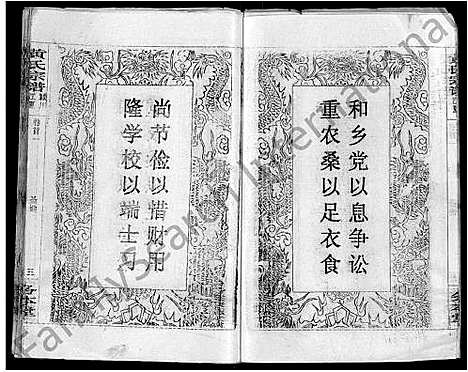 和乡党以息争讼
重农桑以足衣食
尚节俭以惜财用
隆学校以端士习
黄氏宗谱
卷首一
三
FamilySearch International